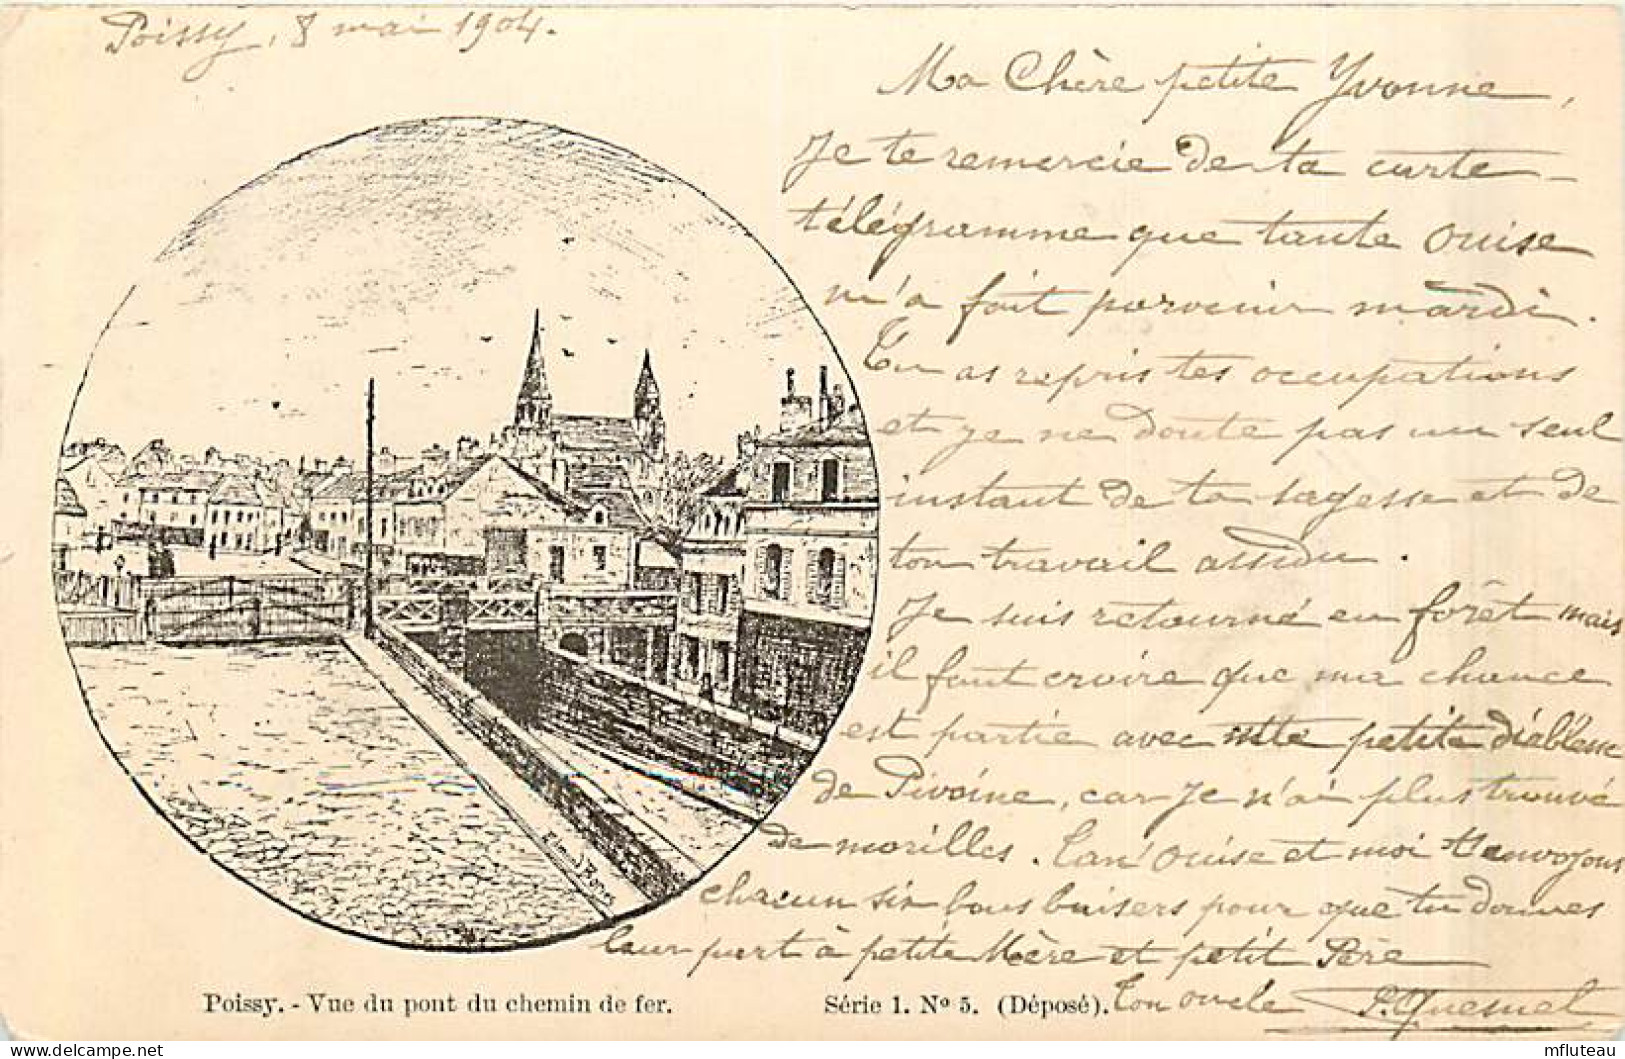 Poissy, 8 mai 1904.
Ma Chère petite Yvonne,
Je te remercie de ta carte-
télégramme que tante Ouise
m'a fait parvenir mardi.
Tu as repris tes occupations
et je ne doute pas un seul
instant de ta sagesse et de
ton travail assidu.
Je suis retourné en forêt mais
il faut croire que ma chance
est partie avec petite
de Pivoine, car je n'ai plus trouvé
de morilles. Tan' Ouise et moi t'envoyons
chacun six bons baisers pour que tu donnes
leur part à petite Mère et petit Père
Ton oncle P. Quesnel
Poissy. - Vue du pont du chemin de fer.
Série 1. Nº 5. (Déposé).
www.delcampe.net
mfluteau